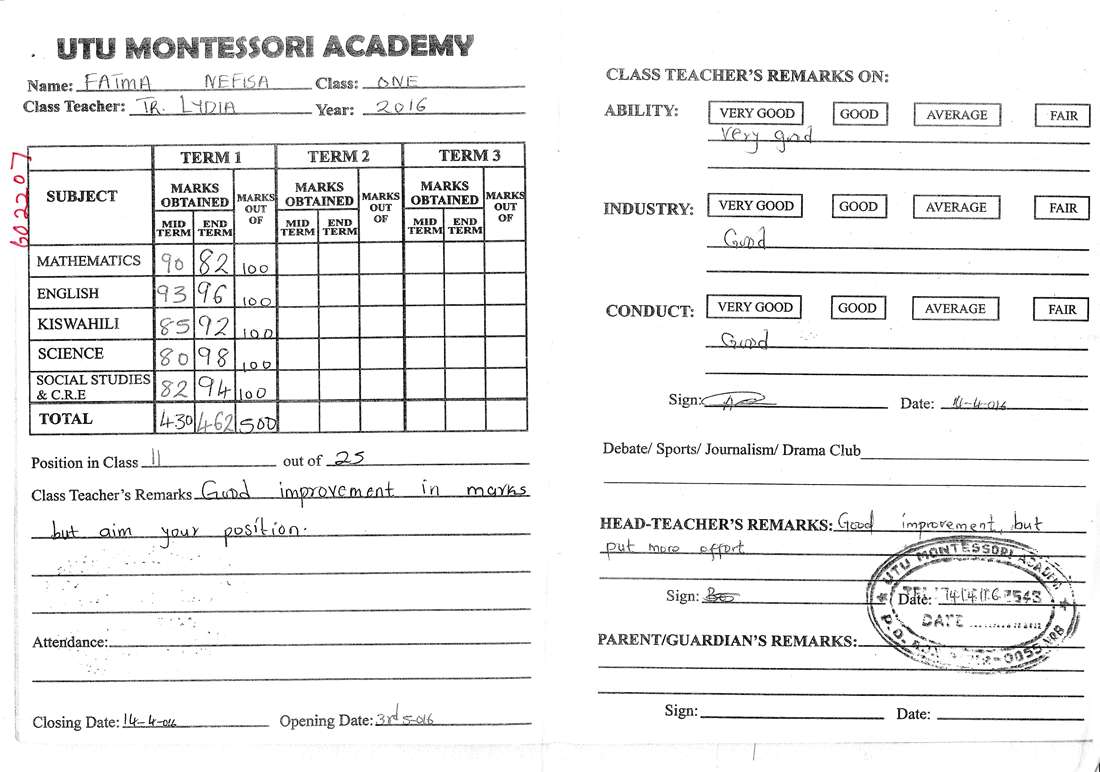 UTU MONTESSORI ACADEMY
Name: FATMA NEFISA Class: ONE
Class Teacher: TR. LYDIA Year: 2016
602207
SUBJECT TERM 1 TERM 2 TERM 3
MARKS OBTAINED MARKS OUT OF MARKS OBTAINED MARKS OUT OF MARKS OBTAINED MARKS OUT OF
MID TERM END TERM MID TERM END TERM MID TERM END TERM
MATHEMATICS 90 82 100
ENGLISH 93 96 100
KISWAHILI 85 92 100
SCIENCE 80 98 100
SOCIAL STUDIES & C.R.E 82 94 100
TOTAL 430 462 500
Position in Class 11 out of 25
Class Teacher's Remarks Good improvement in marks
but aim your position.
Attendance:
Closing Date: 14-4-016 Opening Date: 3rd 5-016
CLASS TEACHER'S REMARKS ON:
ABILITY: VERY GOOD GOOD AVERAGE FAIR
Very good
INDUSTRY: VERY GOOD GOOD AVERAGE FAIR
Good
CONDUCT: VERY GOOD GOOD AVERAGE FAIR
Good
Sign: Date: 14-4-016
Debate/ Sports/ Journalism/ Drama Club
HEAD-TEACHER'S REMARKS: Good improvement, but
put more effort
Sign: Date:
UTU MONTESSORI
DATE
PARENT/GUARDIAN'S REMARKS:
Sign: Date: